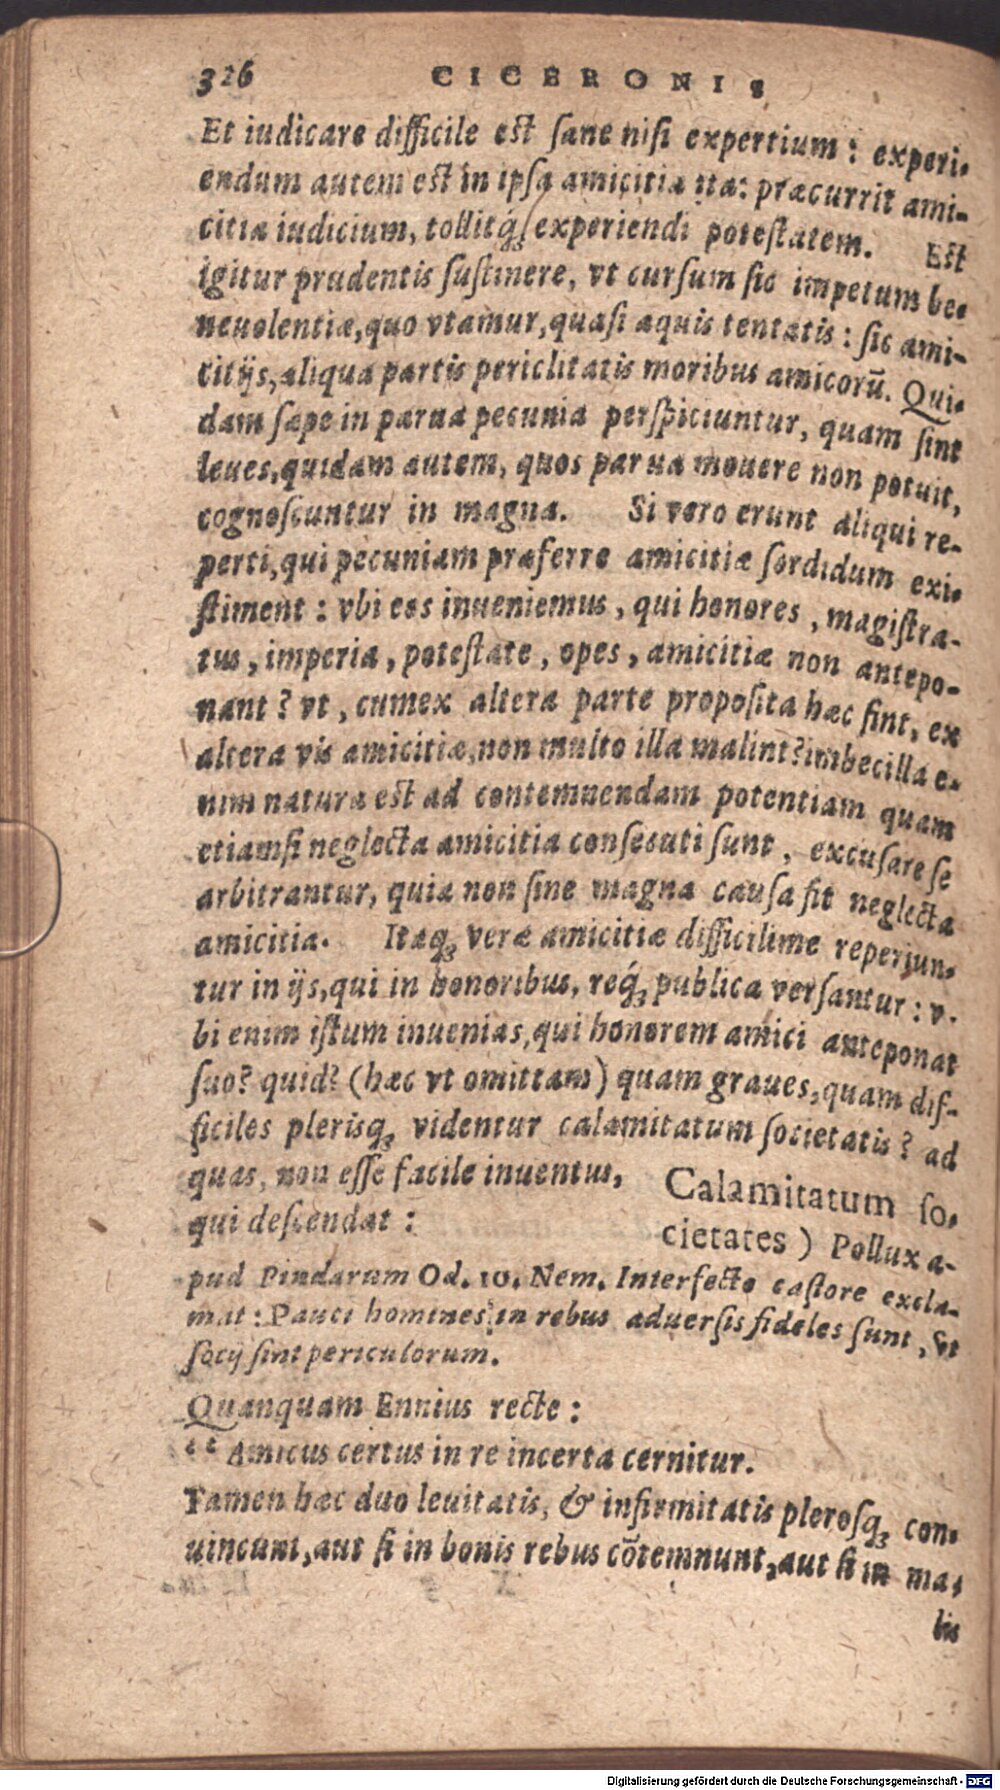 326 CICERONIS
Et iudicare difficile est sane nisi expertium: experi-
endum autem est in ipsa amicitia ita: præcurrit ami-
citia iudicium, tollitq́; experiendi potestatem. Est
igitur prudentis sustinere, vt cursum sic impetum be-
neuolentiæ, quo vtamur, quasi aquis tentatis: sic ami-
citijs, aliqua partis periclitatis moribus amicorũ. Qui-
dam sæpe in parua pecunia perspiciuntur, quam sint
leues, quidam autem, quos parua mouere non potuit,
cognoscuntur in magna. Si vero erunt aliqui re-
perti, qui pecuniam præferre amicitiæ sordidum exi-
stiment: vbi eos inueniemus, qui honores, magistra-
tus, imperia, potestate, opes, amicitiæ non antepo-
nant? vt, cumex altera parte proposita hæc sint, ex
altera vis amicitiæ, non multo illa malint? imbecilla e-
nim natura est ad contemnendam potentiam quam
etiamsi neglecta amicitia consecuti sunt, excusare se
arbitrantur, quia non sine magna causa sit neglecta
amicitia. Itaq; veræ amicitiæ difficilime reperiun-
tur in ijs, qui in honoribus, req́; publica versantur: v-
bi enim istum inuenias, qui honorem amici anteponat
suo? quid? (hæc vt omittam) quam graues, quam dif-
ficiles plerisq; videntur calamitatum societatis? ad
quas, non esse facile inuentus, Calamitatum so-
qui descendat: cietates) Pollux a-
pud Pindarum Od. 10. Nem. Interfecto castore excla-
mat: Pauci homines in rebus aduersis fideles sunt, vt
socij sint periculorum.
Quanquam Ennius recte:
“ Amicus certus in re incerta cernitur.
Tamen hæc duo leuitatis, & infirmitatis plerosq; con-
uincunt, aut si in bonis rebus cõtemnunt, aut si in ma-
lis
Digitalisierung gefördert durch die Deutsche Forschungsgemeinschaft - DFG